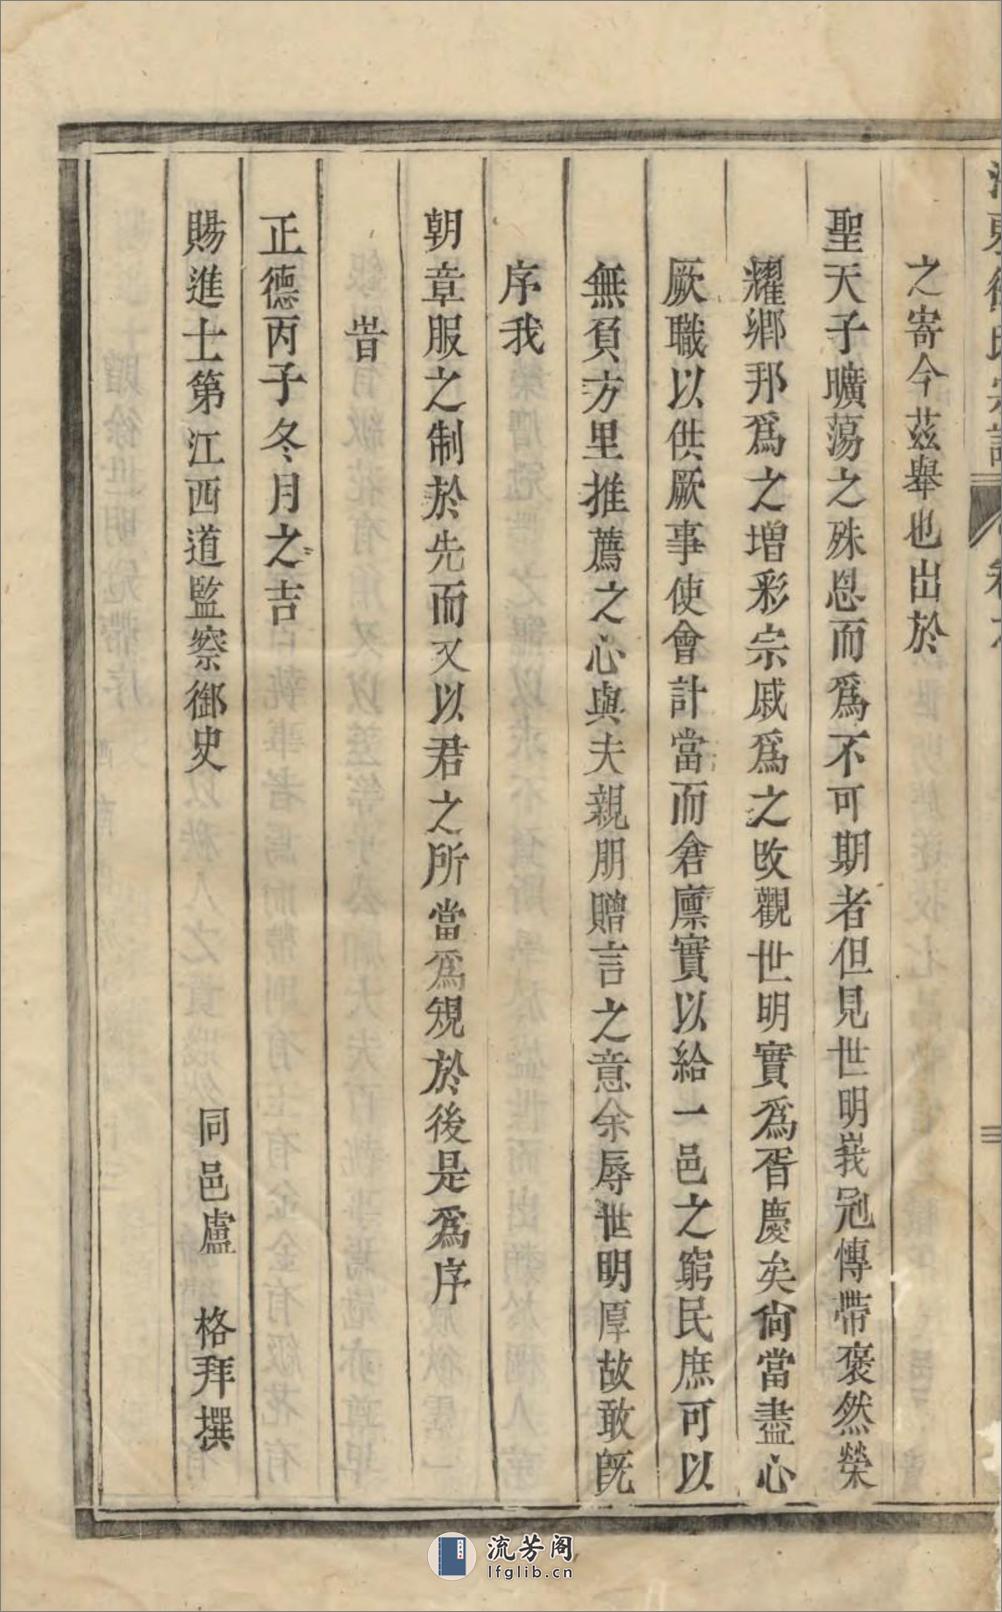 之寄今茲舉也出於
聖天子曠蕩之殊恩而爲不可期者但見世明峩冠博帶褒然榮
耀鄉邦爲之增彩宗戚爲之改觀世明實爲胥慶矣尙當盡心
厥職以供厥事使會計當而倉廩實以給一邑之窮民庶可以
無負方里推薦之心與夫親朋贈言之意余辱世明厚故敢旣
序我
朝章服之制於先而又以君之所當爲規於後是爲序
旹
正德丙子冬月之吉
賜進士第江西道監察御史 同邑盧 格拜撰
流芳阁
lfglib.cn